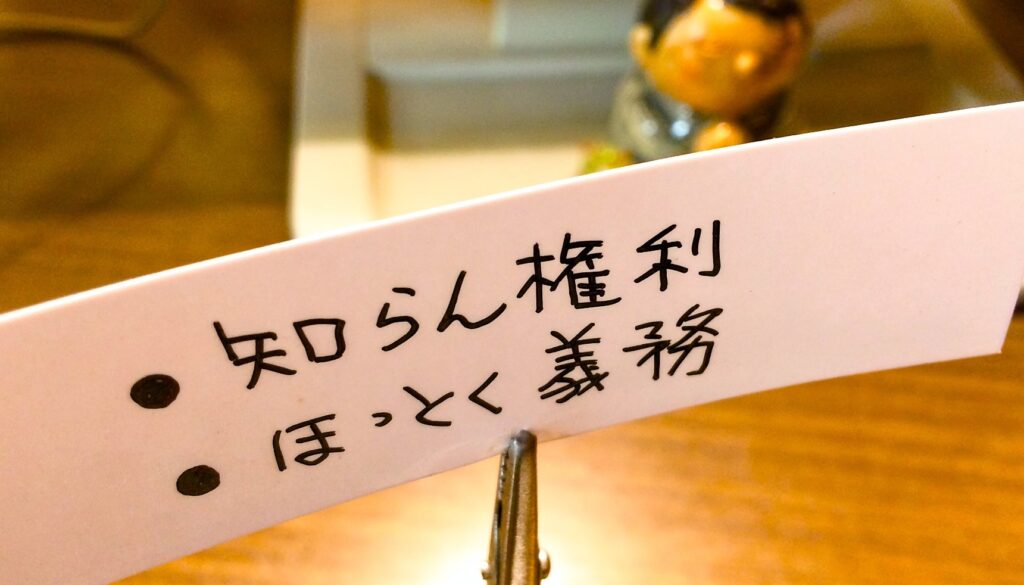 ● 知らん権利
● ほっとく義務